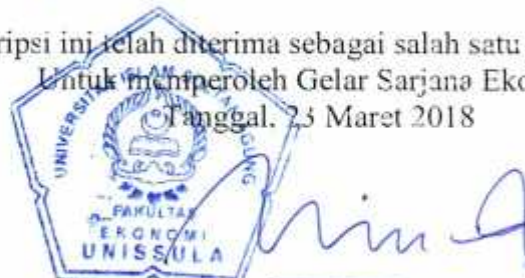 ripsi ini telah diterima sebagai salah satu
Untuk memperoleh Gelar Sarjana Eko
Tanggal, 23 Maret 2018
UNIVERSITAS ISLAM SULTAN AGUNG
FAKULTAS
EKONOMI
UNISSULA